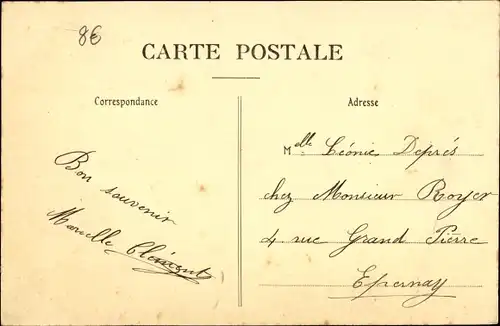 8€
CARTE POSTALE
Correspondance
Adresse
Bon souvenir
Marcelle Clément
Melle Léonie Deprés
chez Monsieur Royer
4 rue Grand Pierre
Epernay